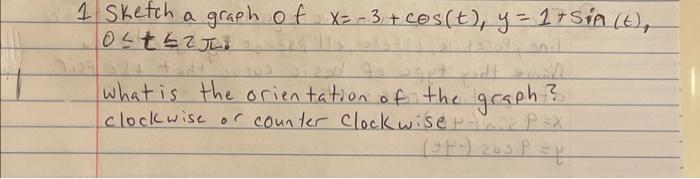 1 Sketch a graph of x = -3 + cos(t), y = 1 + sin(t),
0 ≤ t ≤ 2π.
what is the orientation of the graph?
clockwise or counter clockwise